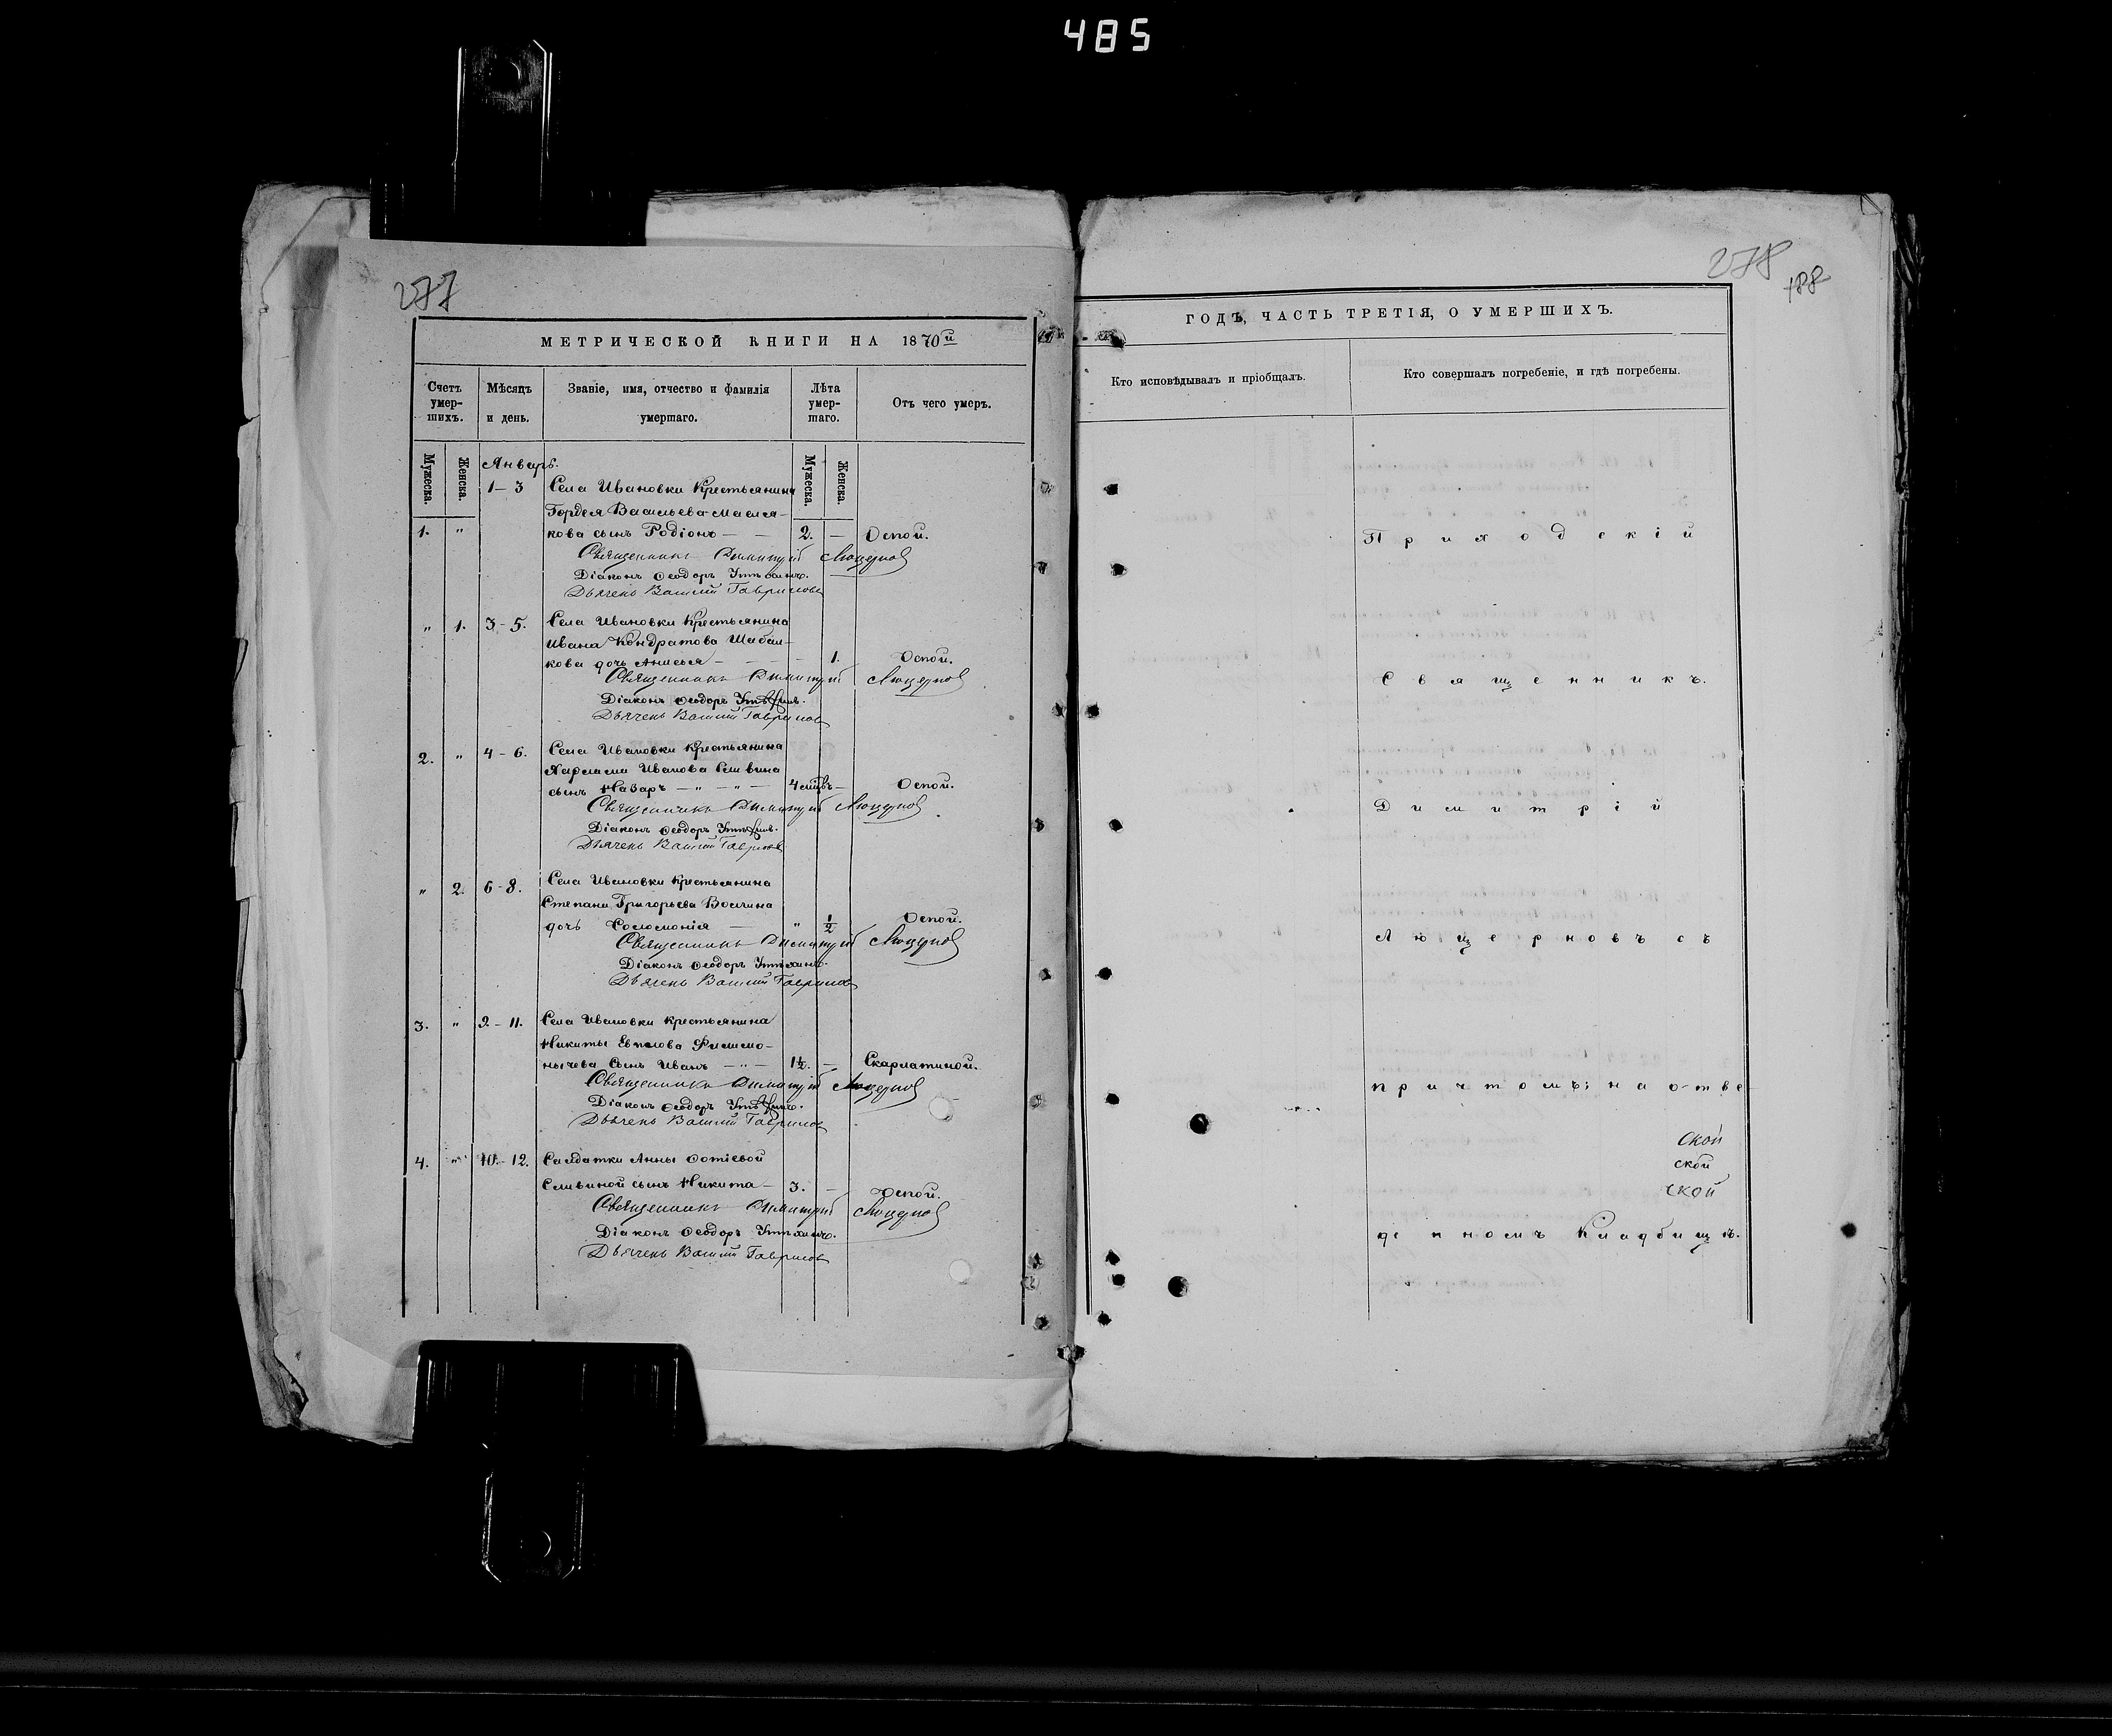 485
277
МЕТРИЧЕСКОЙ КНИГИ НА 1870й
Счетъ умер-шихъ.
Мѣсяцъ и день.
Званіе, имя, отчество и фамилія умершаго.
Лѣта умер-шаго.
Отъ чего умеръ.
Мужеска.
Женска.
Мужеска.
Женска.
Январь.
1-3 Села Ивановки Крестьянина
Гордея Васильева Масля-
1. " кова сынъ Родіонъ — — 2. — Оспой.
Священникъ Димитрій Люцерновъ
Діаконъ Ѳеодоръ Утѣхинъ.
Дьячекъ Василій Гавриловъ
" 1. 3-5. Села Ивановки Крестьянина
Ивана Кондратова Шабал-
кова дочь Анисья — — — — 1. Оспой.
Священникъ Димитрій Люцерновъ
Діаконъ Ѳеодоръ Утѣхинъ.
Дьячекъ Василій Гавриловъ
2. " 4-6. Села Ивановки Крестьянина
Харлама Иванова Сливина
сынъ Назаръ — " — " — 4 мѣс. — Оспой.
Священникъ Димитрій Люцерновъ
Діаконъ Ѳеодоръ Утѣхинъ.
Дьячекъ Василій Гавриловъ
" 2. 6-8. Села Ивановки Крестьянина
Степана Григорьева
дочь Соломонія — " 1/2 Оспой.
Священникъ Димитрій Люцерновъ
Діаконъ Ѳеодоръ Утѣхинъ.
Дьячекъ Василій Гавриловъ
3. " 9-11. Села Ивановки Крестьянина
Никиты Евплова Филимо-
нычева Сынъ Иванъ — " — 1½. — Скарлатиной.
Священникъ Димитрій Люцерновъ
Діаконъ Ѳеодоръ Утѣхинъ.
Дьячекъ Василій Гавриловъ
4. " 10-12. Салдатки Анны Фотіевой
Сливиной сынъ Никита — 3. — Оспой.
Священникъ Димитрій Люцерновъ
Діаконъ Ѳеодоръ Утѣхинъ.
Дьячекъ Василій Гавриловъ
278
188
ГОДЪ, ЧАСТЬ ТРЕТІЯ, О УМЕРШИХЪ.
Кто исповѣдывалъ и пріобщалъ.
Кто совершалъ погребеніе, и гдѣ погребены.
Приходскій
Священникъ.
Димитрій
Люцерновъ съ
причтомъ: на отве-
ской
ской
ской
денномъ Кладбищѣ.